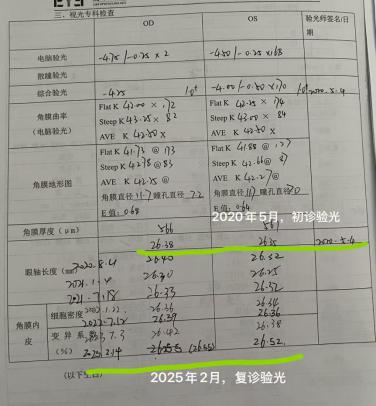 三、视光专科检查
OD OS 验光师签名/日期
电脑验光 -4.75/-0.25×2 -4.50/-0.25×168
散瞳验光
综合验光 -4.25 1.0+ -4.00/-0.50×170 1.0+ 2020-5-4
角膜曲率 Flat K 42.00 × 172 Flat K 42.25 × 174
Steep K 43.25 × 82 Steep K 43.00 × 84
(电脑验光) AVE K 42.50 × AVE K 42.50 ×
Flat K 41.73 @ 173 Flat K 41.88 @ 127
Steep K 42.78 @ 83 Steep K 42.66 @
角膜地形图 AVE K 42.25 @ AVE K 42.27 @
角膜直径 11.7 瞳孔直径 7.2 角膜直径 瞳孔直径
E 值: 0.68 E 值: 0.64
2020年5月,初诊验光
角膜厚度(μm) 566
26.38 26.35 2020-5-4
眼轴长度 2020.8.4 26.40 26.32
2021.1.4 26.30 26.25
2021.7.18 26.33 26.52
角膜内皮 细胞密度 2022.1.22 26.36 26.34
2022.7.12 26.39 26.36
变异系数 7.3 26.42 26.38
(%) 2025.2.14 (26.55) 26.52
(以下
2025年2月,复诊验光